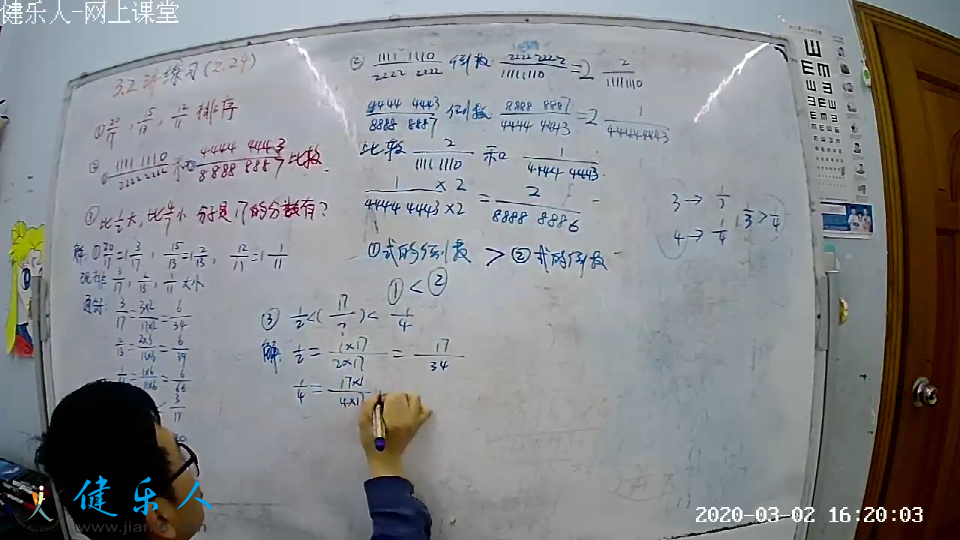 健乐人-网上课堂
3.2 讲练习(2.24)
① 20/17, 15/13, 12/11 排序
② 1111 1110/2222 2222 和 4444 4443/8888 8887 比较
解: ① 20/17=1 3/17, 15/13=1 2/13, 12/11=1 1/11
3/17=3×2/17×2=6/34
2/13=2×3/13×3=6/39
② 1111 1110/2222 2222 倒数 2222 2222/1111 1110=2 2/1111 1110
4444 4443/8888 8887 倒数 8888 8887/4444 4443=2 1/4444 4443
比较 2/1111 1110 和 1/4444 4443
1×2/4444 4443×2=2/8888 8886
①式的倒数 > ②式的倒数
① < ②
③ 1/2<(17/?)<1/4
解: 1/2=1×17/2×17=17/34
1/4=17×1/4×17
3→1/3
4→1/4, 1/3>1/4
健乐人
2020-03-02 16:20:03